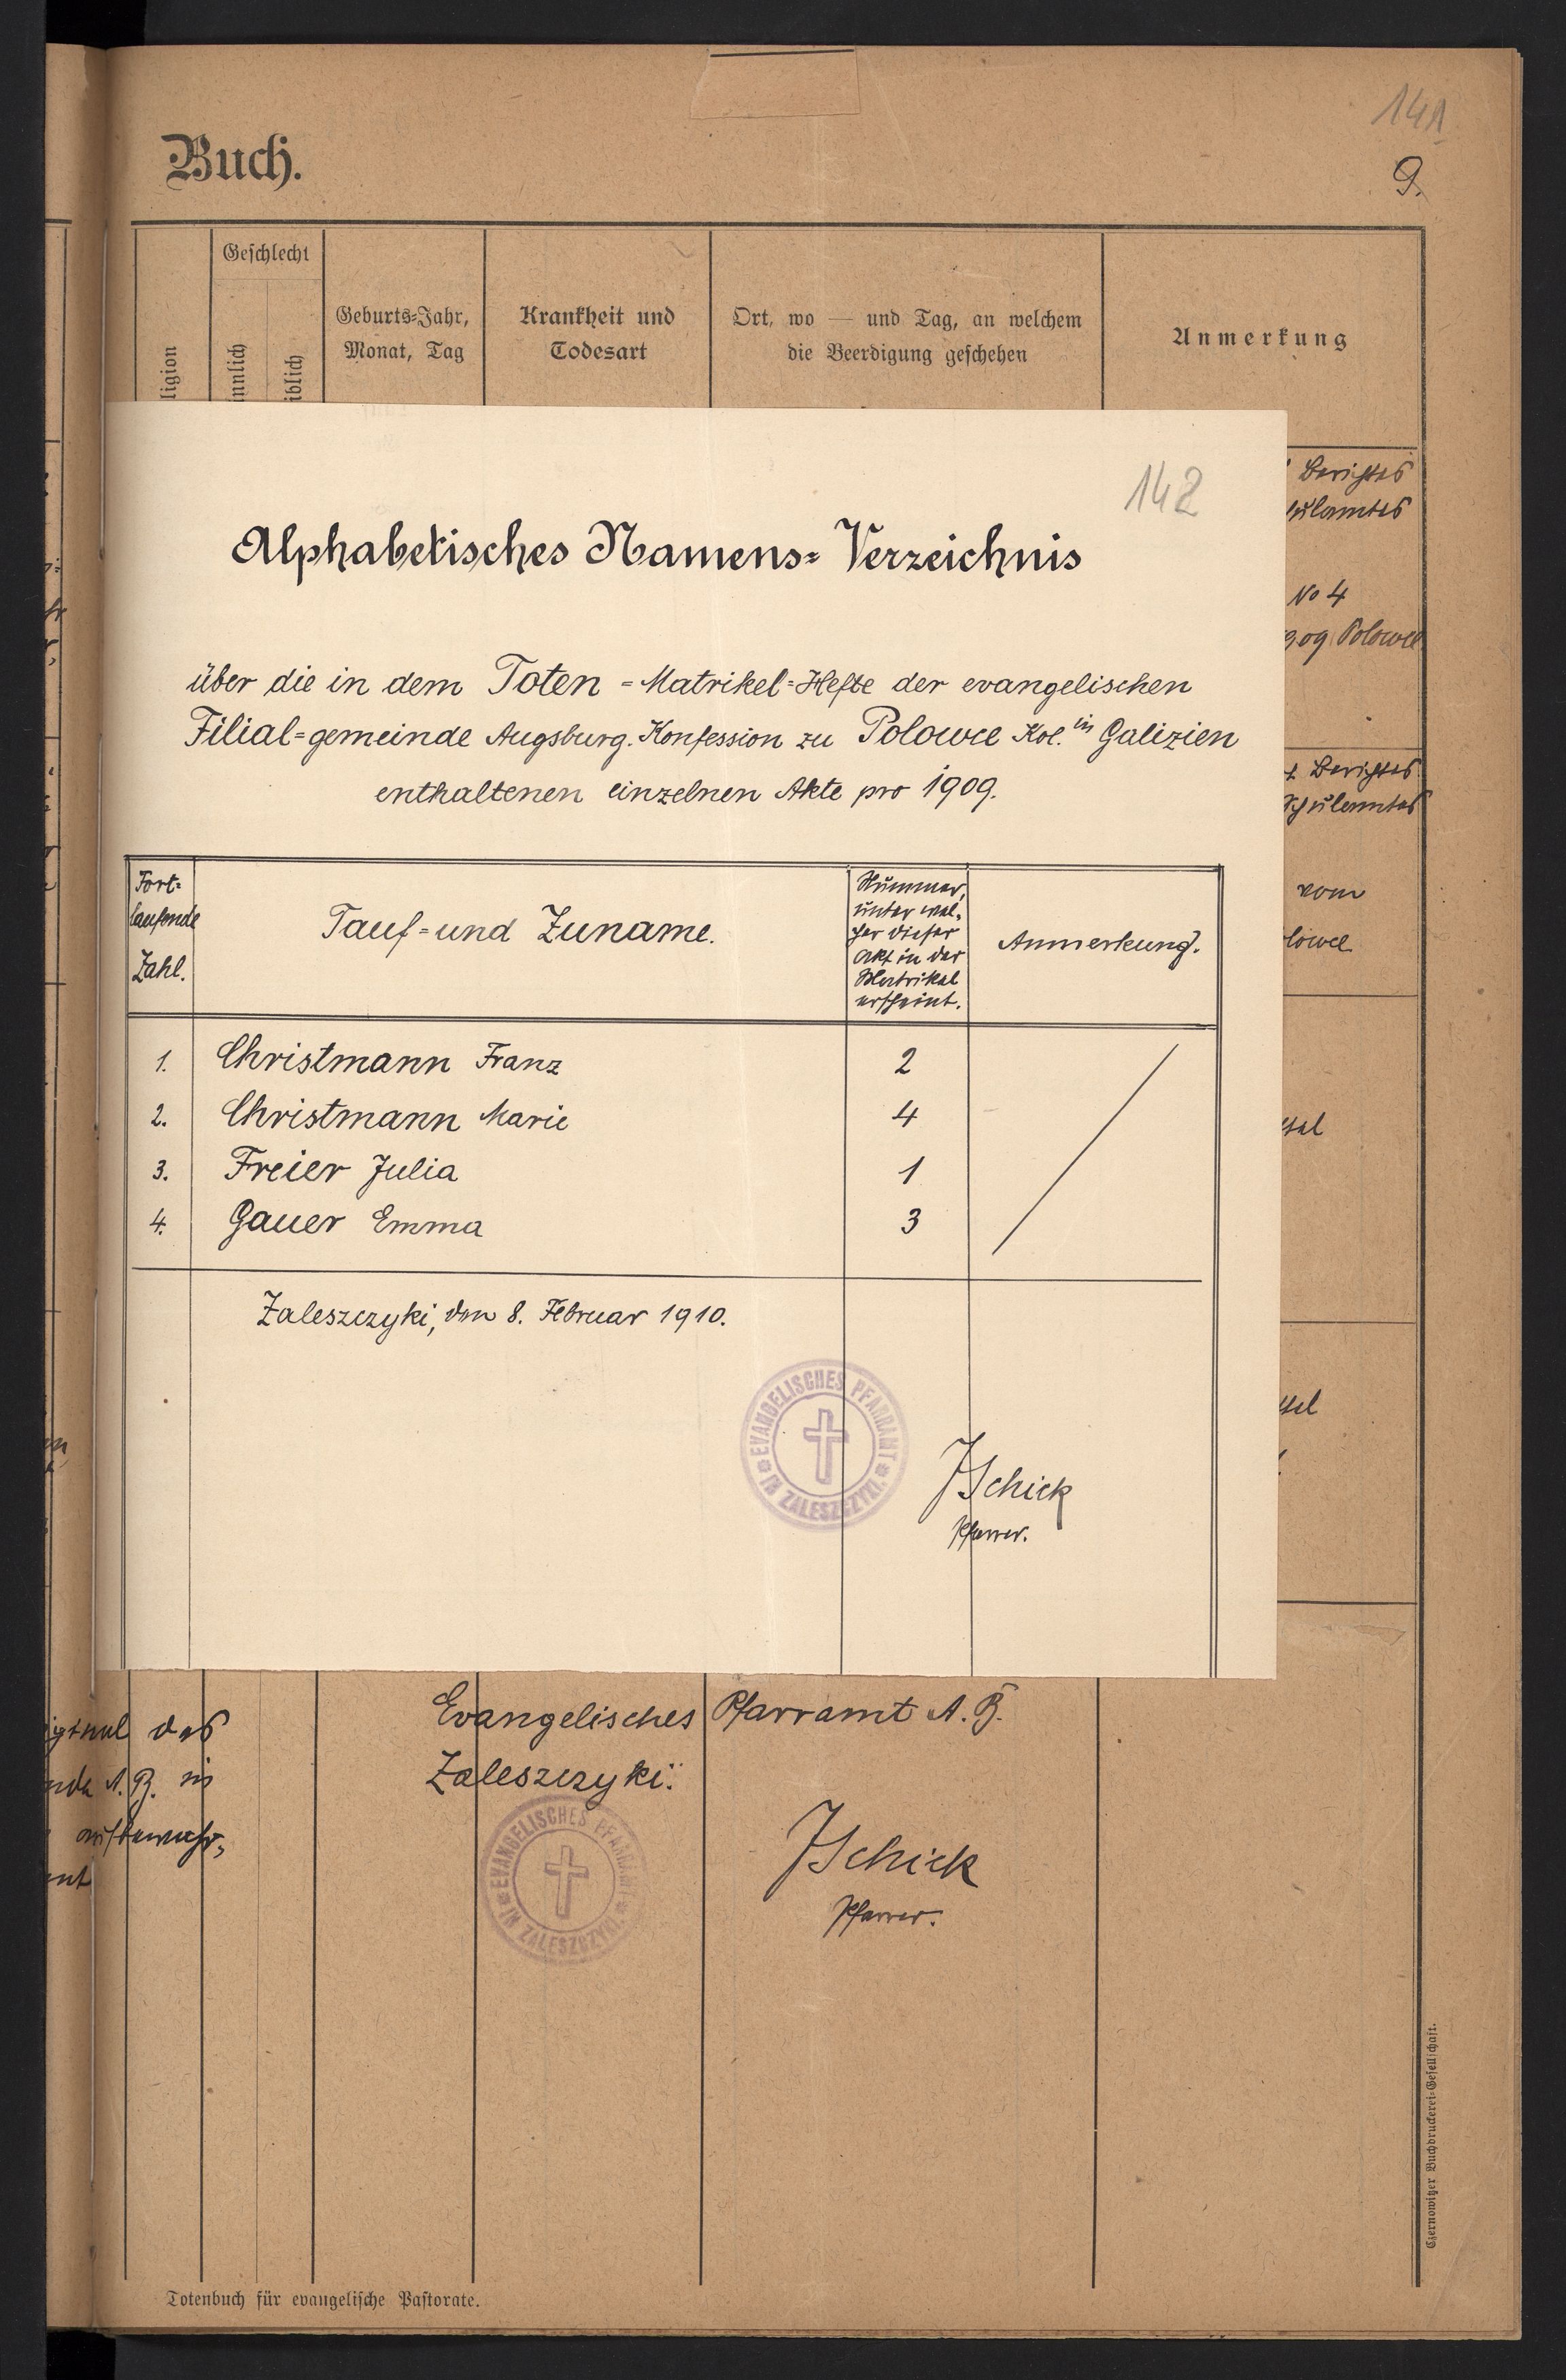 141
Buch.
9.
Religion
Geschlecht
Geburts=Jahr,
Monat, Tag
Krankheit und
Todesart
Ort, wo — und Tag, an welchem
die Beerdigung geschehen
Anmerkung
142
Berichtes
No 4
Polowce
Berichtes
vom
Alphabetisches Namens=Verzeichnis
über die in dem Toten=Matrikel=Hefte der evangelischen
Filial=gemeinde Augsburg. Konfession zu Polowce Kol. in Galizien
enthaltenen einzelnen Akte pro 1909.
Fort=
laufende
Zahl.
Tauf=und Zuname.
Nummer,
unter wel=
cher dieser
Akt in der
Matrikel
erscheint.
Anmerkung.
1. Christmann Franz 2
2. Christmann Marie 4
3. Freier Julia 1
4. Gauer Emma 3
Zaleszczyki, den 8. Februar 1910.
EVANGELISCHES PFARRAMT
IN ZALESZCZYKI.
JSchick
Pfarrer.
des
A.B. in
aufbewahr,
Evangelisches Pfarramt A.B.
Zaleszczyki:
EVANGELISCHES PFARRAMT
IN ZALESZCZYKI.
JSchick
Pfarrer.
Totenbuch für evangelische Pastorate.
Czernowitzer Buchdruckerei=Gesellschaft.